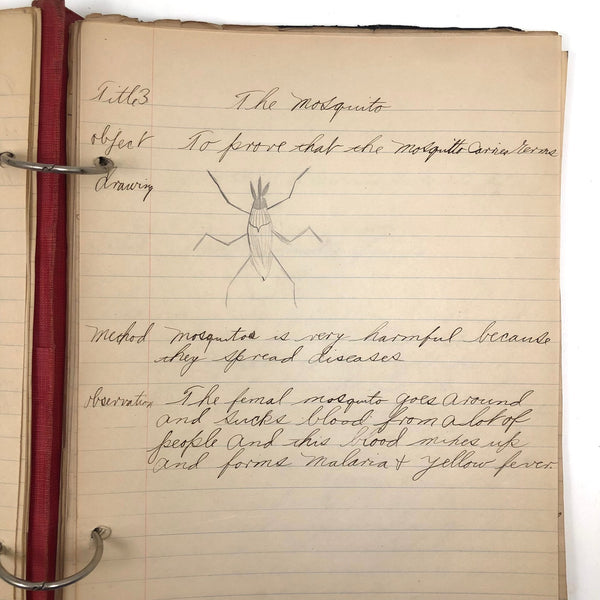 Title 3 The Mosquito
object To prove that the mosquitto Carries Germs
drawing
Method Mosquitoe is very harmful because
they spread diseases
observation The femal mosquito goes around
and sucks blood from a lot of
people and this blood mixes up
and forms Malaria + Yellow fever.